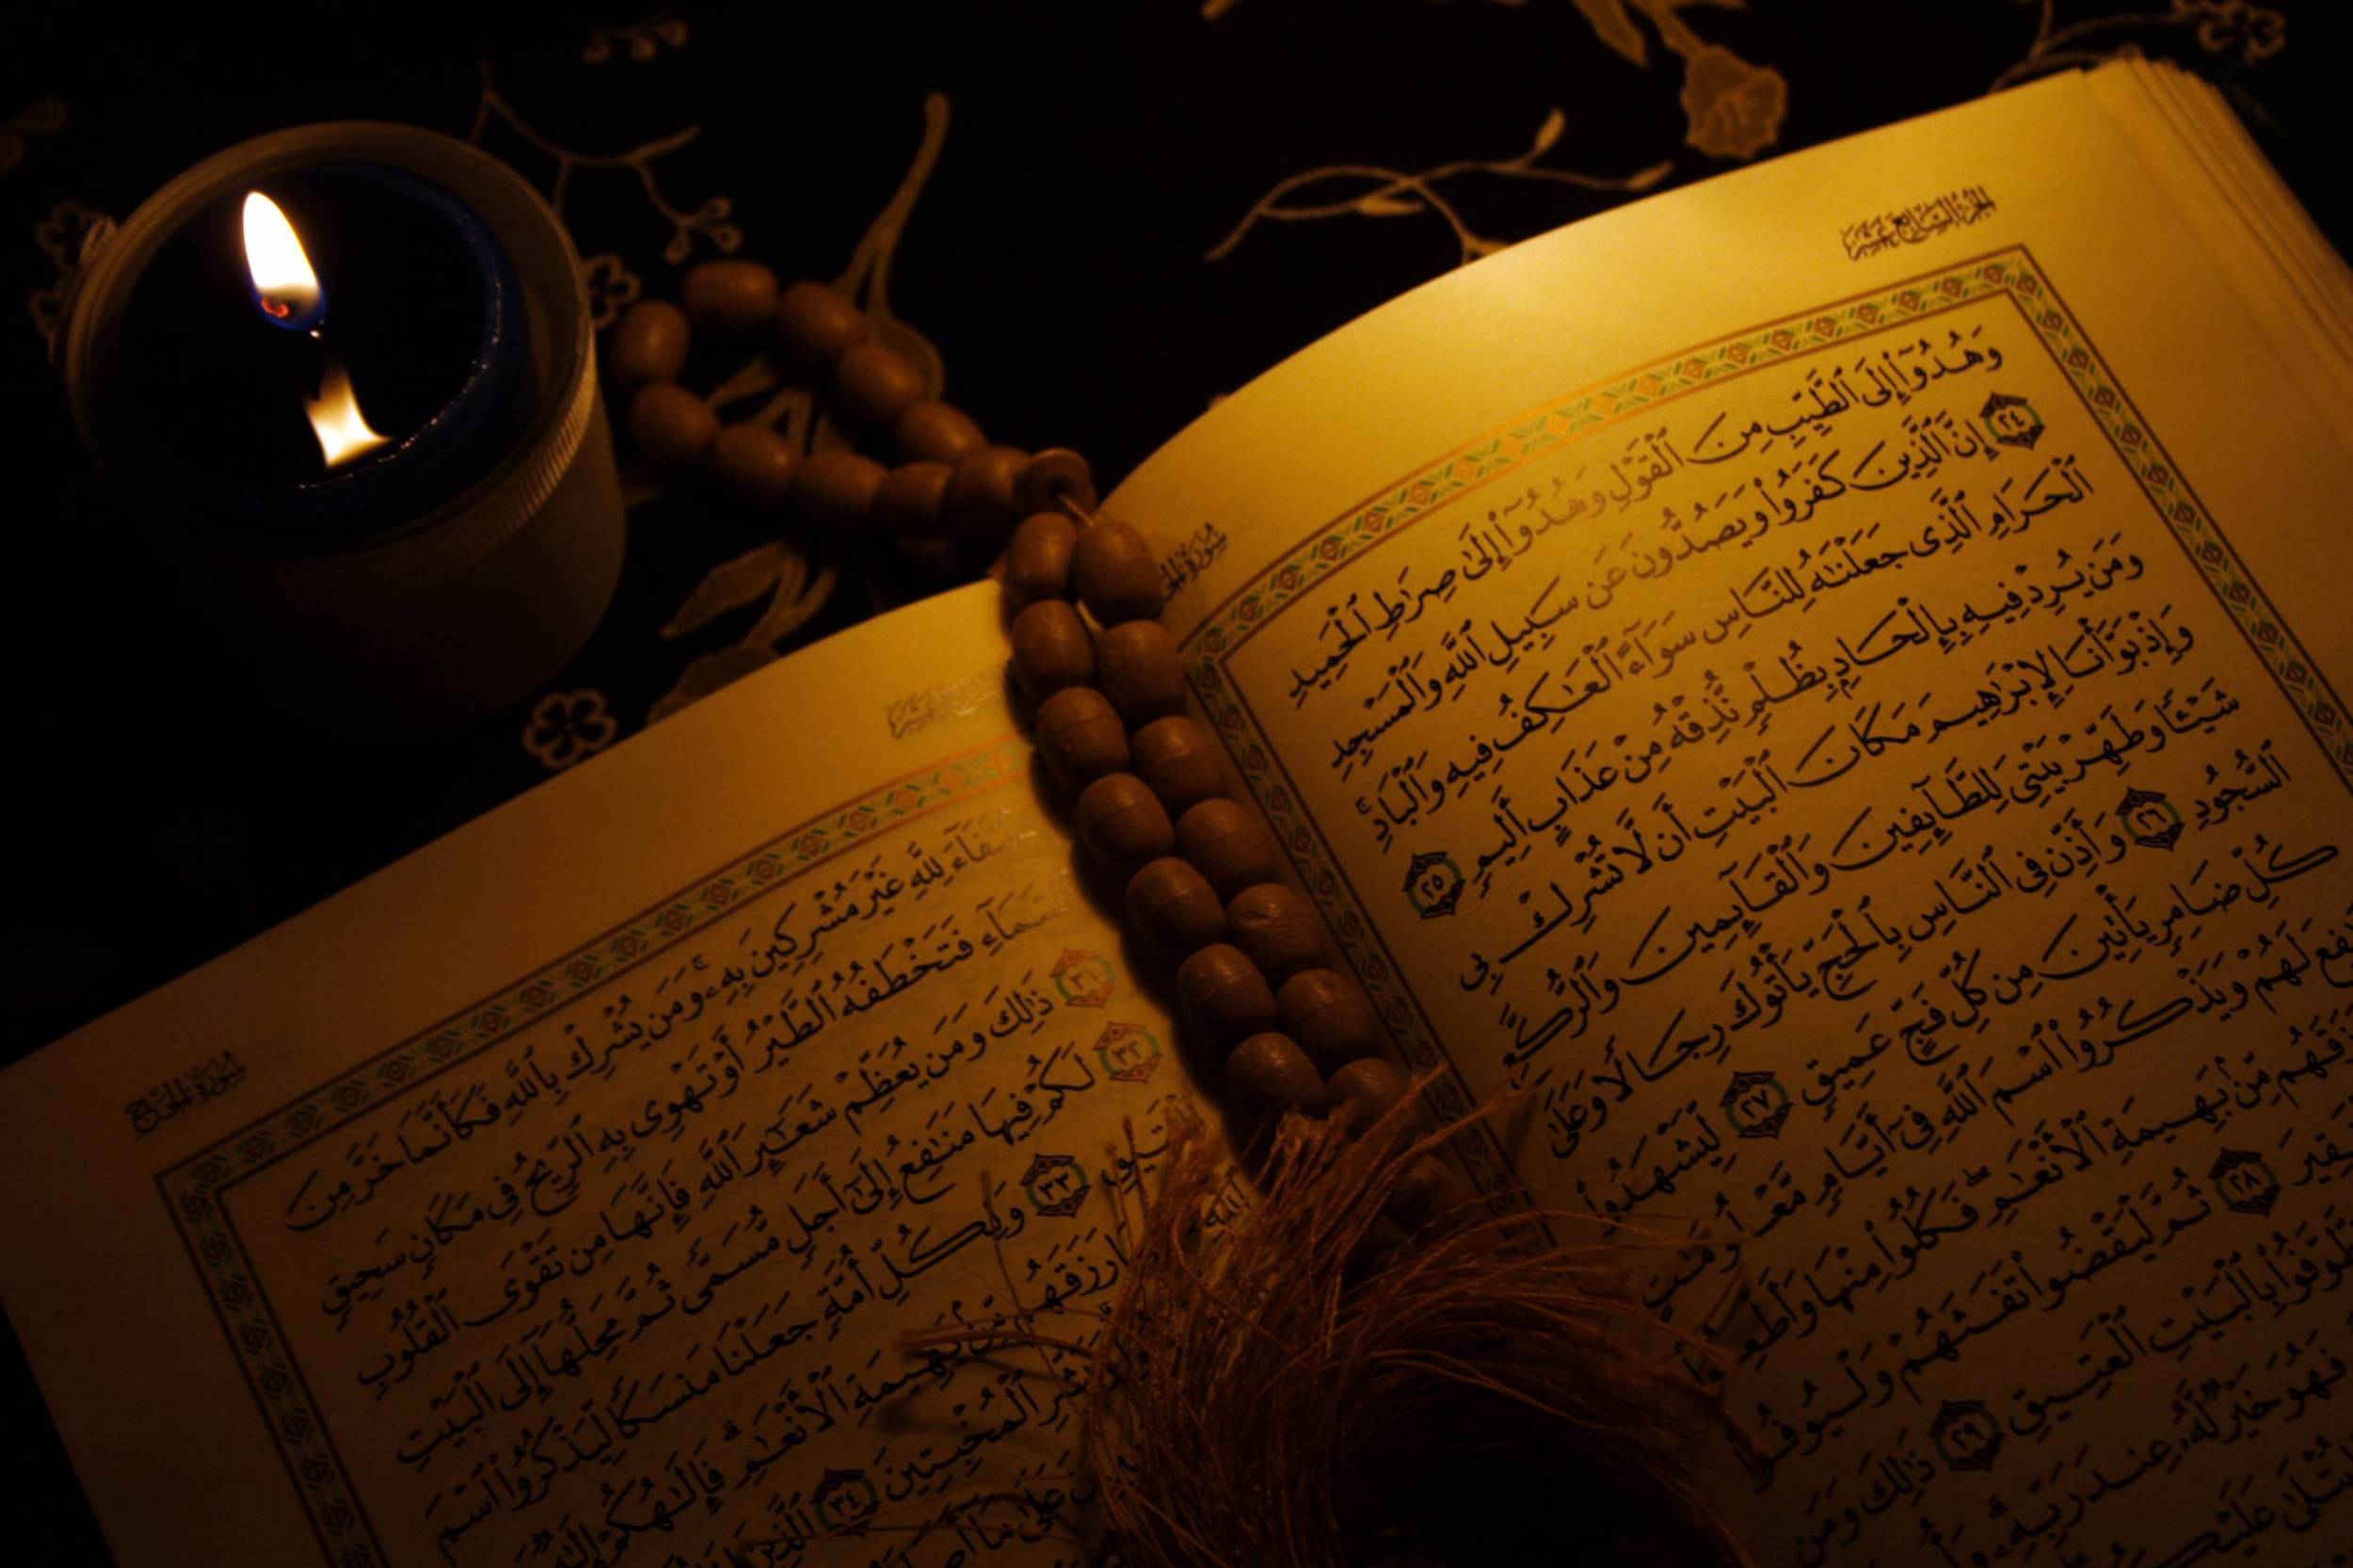 الجزء السابع عشر
سورة الحج
وَهُدُوٓا۟ إِلَى ٱلطَّيِّبِ مِنَ ٱلْقَوْلِ وَهُدُوٓا۟ إِلَىٰ صِرَٰطِ ٱلْحَمِيدِ
٢٤ إِنَّ ٱلَّذِينَ كَفَرُوا۟ وَيَصُدُّونَ عَن سَبِيلِ ٱللَّهِ وَٱلْمَسْجِدِ
ٱلْحَرَامِ ٱلَّذِى جَعَلْنَٰهُ لِلنَّاسِ سَوَآءً ٱلْعَٰكِفُ فِيهِ وَٱلْبَادِ ۚ
وَمَن يُرِدْ فِيهِ بِإِلْحَادٍۭ بِظُلْمٍ نُّذِقْهُ مِنْ عَذَابٍ أَلِيمٍ ٢٥
وَإِذْ بَوَّأْنَا لِإِبْرَٰهِيمَ مَكَانَ ٱلْبَيْتِ أَن لَّا تُشْرِكْ بِى
شَيْـًٔا وَطَهِّرْ بَيْتِىَ لِلطَّآئِفِينَ وَٱلْقَآئِمِينَ وَٱلرُّكَّعِ
ٱلسُّجُودِ ٢٦ وَأَذِّن فِى ٱلنَّاسِ بِٱلْحَجِّ يَأْتُوكَ رِجَالًا وَعَلَىٰ
كُلِّ ضَامِرٍ يَأْتِينَ مِن كُلِّ فَجٍّ عَمِيقٍ ٢٧ لِّيَشْهَدُوا۟
لَهُمْ وَيَذْكُرُوا۟ ٱسْمَ ٱللَّهِ فِىٓ أَيَّامٍ مَّعْلُومَٰتٍ
مِّنۢ بَهِيمَةِ ٱلْأَنْعَٰمِ ۖ فَكُلُوا۟ مِنْهَا وَأَطْعِمُوا۟
٢٨ ثُمَّ لْيَقْضُوا۟ تَفَثَهُمْ وَلْيُوفُوا۟
بِٱلْبَيْتِ ٱلْعَتِيقِ ٢٩ ذَٰلِكَ وَمَن
فَهُوَ خَيْرٌ لَّهُۥ عِندَ رَبِّهِۦ ۗ
سورة الحج
لِلَّهِ غَيْرَ مُشْرِكِينَ بِهِۦ ۚ وَمَن يُشْرِكْ بِٱللَّهِ فَكَأَنَّمَا خَرَّ مِنَ
فَتَخْطَفُهُ ٱلطَّيْرُ أَوْ تَهْوِى بِهِ ٱلرِّيحُ فِى مَكَانٍ سَحِيقٍ
٣١ ذَٰلِكَ وَمَن يُعَظِّمْ شَعَٰٓئِرَ ٱللَّهِ فَإِنَّهَا مِن تَقْوَى ٱلْقُلُوبِ
٣٢ لَكُمْ فِيهَا مَنَٰفِعُ إِلَىٰٓ أَجَلٍ مُّسَمًّى ثُمَّ مَحِلُّهَآ إِلَى ٱلْبَيْتِ
٣٣ وَلِكُلِّ أُمَّةٍ جَعَلْنَا مَنسَكًا لِّيَذْكُرُوا۟ ٱسْمَ ٱللَّهِ
رَزَقَهُم مِّنۢ بَهِيمَةِ ٱلْأَنْعَٰمِ ۗ فَإِلَٰهُكُمْ إِلَٰهٌ
ٱلْمُخْبِتِينَ ٣٤ ٱلَّذِينَ
عَلَىٰ مَآ